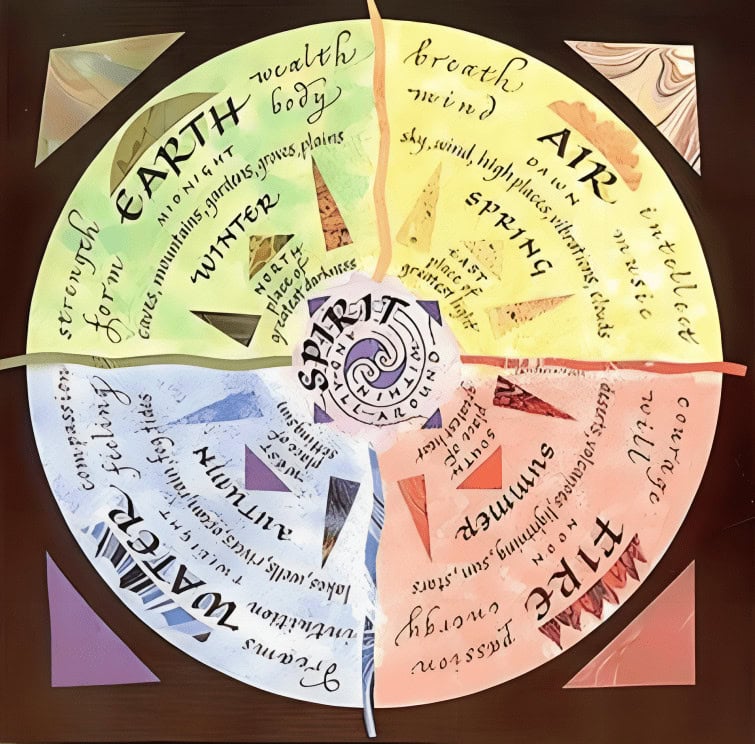 wealth
body
EARTH
MIDNIGHT
caves, mountains, gardens, groves, plains
WINTER
NORTH
place of
greatest darkness
strength
form
breath
mind
AIR
DAWN
sky, wind, high places, vibrations, clouds
SPRING
EAST
place of
greatest light
intellect
music
SPIRIT
WITHIN AND ALL AROUND
courage
will
FIRE
NOON
deserts, volcanoes, lightning, sun, stars
SUMMER
SOUTH
place of
greatest heat
energy
passion
compassion
feeling
WATER
TWILIGHT
lakes, wells, rivers, ocean, rain, fog, tides
AUTUMN
WEST
place of
setting sun
intuition
dreams